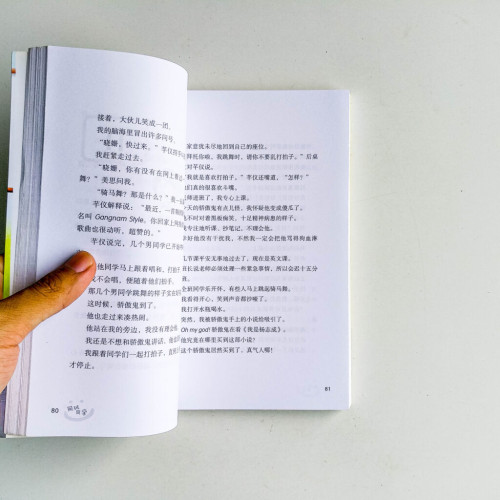 接着，大伙儿笑成一团。
我的脑海里冒出许多问号，
我赶紧走过去。
“晓姗，快过来。”芊仪
“晓姗，你有没有在网上
舞？”美思问我。
“骑马舞？那是什么？”我一
芊仪解释说：“最近，一首
名叫 Gangnam Style。你回家上网
歌曲也很动听，超赞的。”
芊仪说完，几个男同学已
他同学马上跟着唱和、打拍子
我不会唱，便随着他们拍手。
那几个男同学跳舞的样子实在
这时候，骄傲鬼到
他也走过来凑热闹。
他站在我的旁边，我没有理会他
我还是不想和骄傲鬼讲话，他
我跟着同学们一起打拍子，直到
才停止。
80
家意犹未尽地回到自己的座位。
拜托你啦，我跳舞时，请你不要乱打拍子。”后桌
对芊仪说。
“我就是喜欢打拍子。”芊仪还嘴道，“怎样？”
们真的很喜欢斗嘴。
师进班了，我专心上课。
今天的骄傲鬼有点儿怪，我怀疑他变成傻瓜了。
他不时对着黑板偷笑，十足精神病患的样子。
我专注地听课、抄笔记，不理会他。
幸好他没有干扰我，不然我一定会把他骂得狗血淋
几节课平安无事地过去了，现在是英文课。
班长说老师必须处理一些紧急事情，所以会迟十五分
全班同学乐开怀，有些人马上跳起骑马舞。
我看得开心，笑到声音都沙哑了。
我打开水瓶喝水。
突然，我被骄傲鬼手上的小说给吸引了。
Oh my god! 骄傲鬼在看《我是杨志成》。
他究竟在哪里买到这部小说？
这个骄傲鬼居然买到了，真气人喔！
81